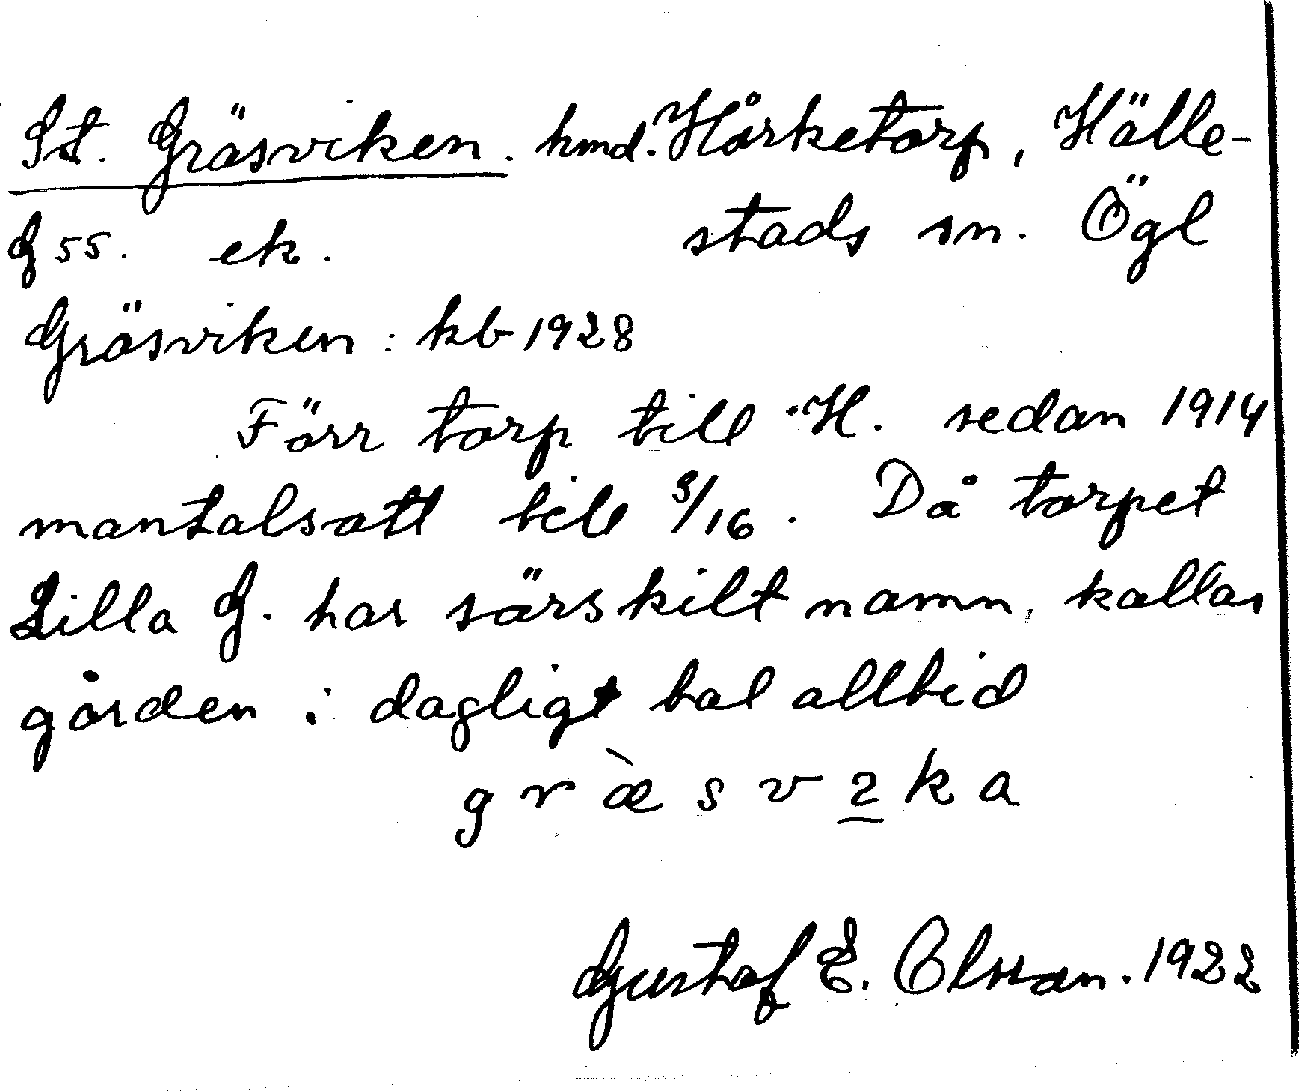 St. Gräsviken. hmd. Hårketorp, Hälle-
G 55. ek. stads sn. Ögl
Gräsviken : kb 1928
Förr torp till H. sedan 1914
mantalsatt till 3/16. Då torpet
Lilla G. har särskilt namn, kallas
gården i dagligt tal alltid
g r æ̀ s v ɿ̲ k a
Gustaf E. Olsson. 1922